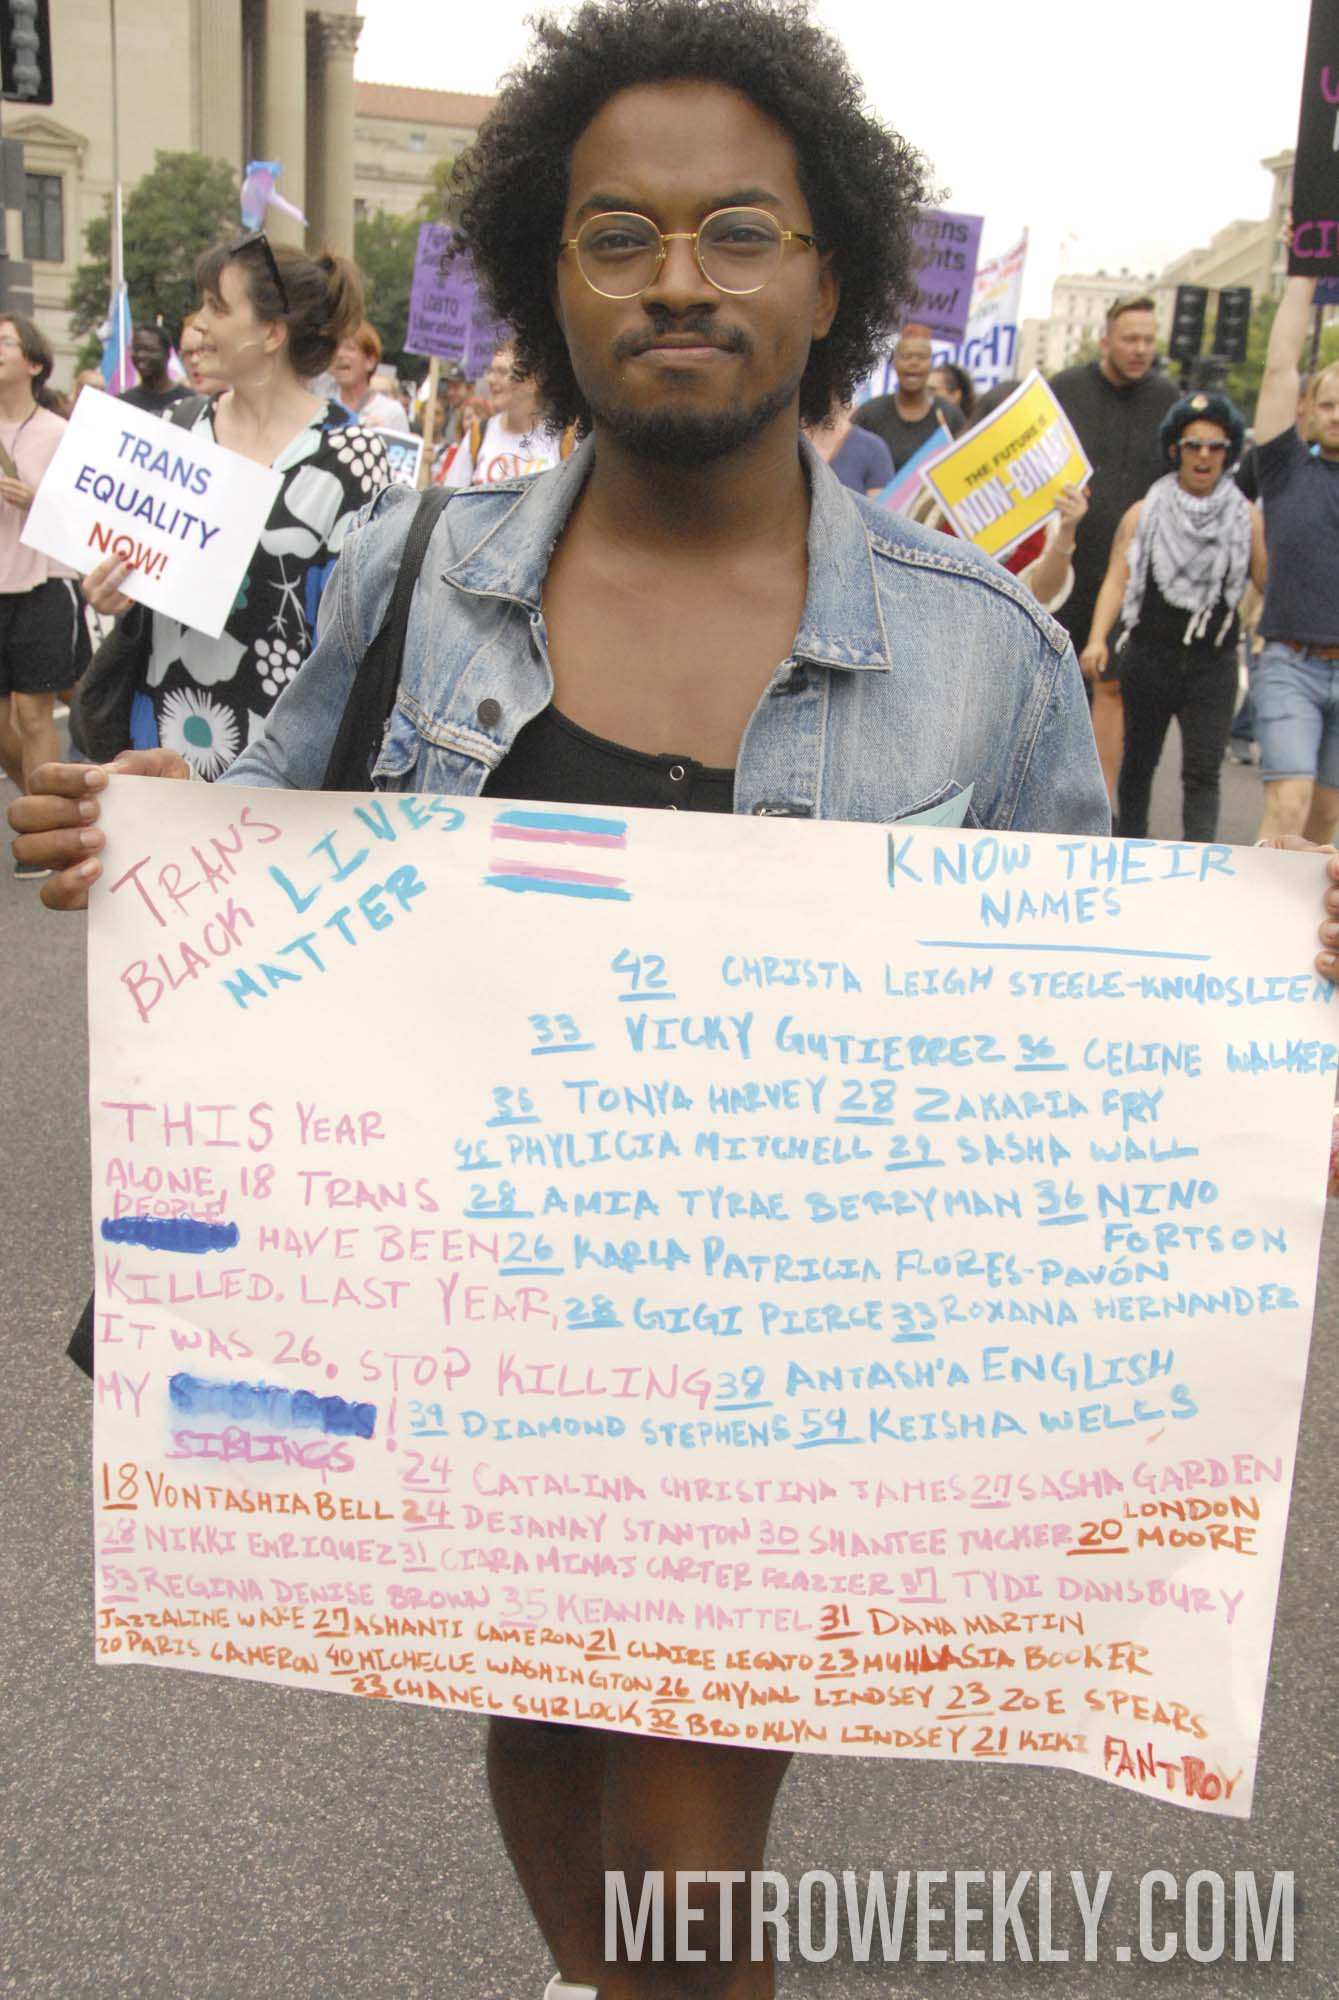 TRANS
EQUALITY
NOW!
LGBTQ
Liberation!
THE FUTURE IS
NON-BINARY
TRANS
BLACK LIVES
MATTER
KNOW THEIR
NAMES
42 CHRISTA LEIGH STEELE-KNUDSLIEN
33 VICKY GUTIERREZ 36 CELINE WALKER
35 TONYA HARVEY 28 ZAKARIA FRY
45 PHYLICIA MITCHELL 29 SASHA WALL
28 AMIA TYRAE BERRYMAN 36 NINO
FORTSON
26 KARLA PATRICIA FLORES-PAVÓN
28 GIGI PIERCE 33 ROXANA HERNANDEZ
38 ANTASH'A ENGLISH
39 DIAMOND STEPHENS 54 KEISHA WELLS
THIS YEAR
ALONE, 18 TRANS
PEOPLE
HAVE BEEN
KILLED. LAST YEAR,
IT WAS 26. STOP KILLING
MY !
SIBLINGS
24 CATALINA CHRISTINA JAMES 27 SASHA GARDEN
18 VONTASHIA BELL 24 DEJANAY STANTON 30 SHANTEE TUCKER 20 LONDON
MOORE
28 NIKKI ENRIQUEZ 31 CIARA MINAJ CARTER FRAZIER 37 TYDI DANSBURY
53 REGINA DENISE BROWN 35 KEANNA MATTEL 31 DANA MARTIN
JAZZALINE WARE 27 ASHANTI CAMERON 21 CLAIRE LEGATO 23 MUHLASIA BOOKER
20 PARIS CAMERON 40 MICHELLE WASHINGTON 26 CHYNAL LINDSEY 23 ZOE SPEARS
23 CHANEL SURLOCK 32 BROOKLYN LINDSEY 21 KIKI FANTROY
METROWEEKLY.COM